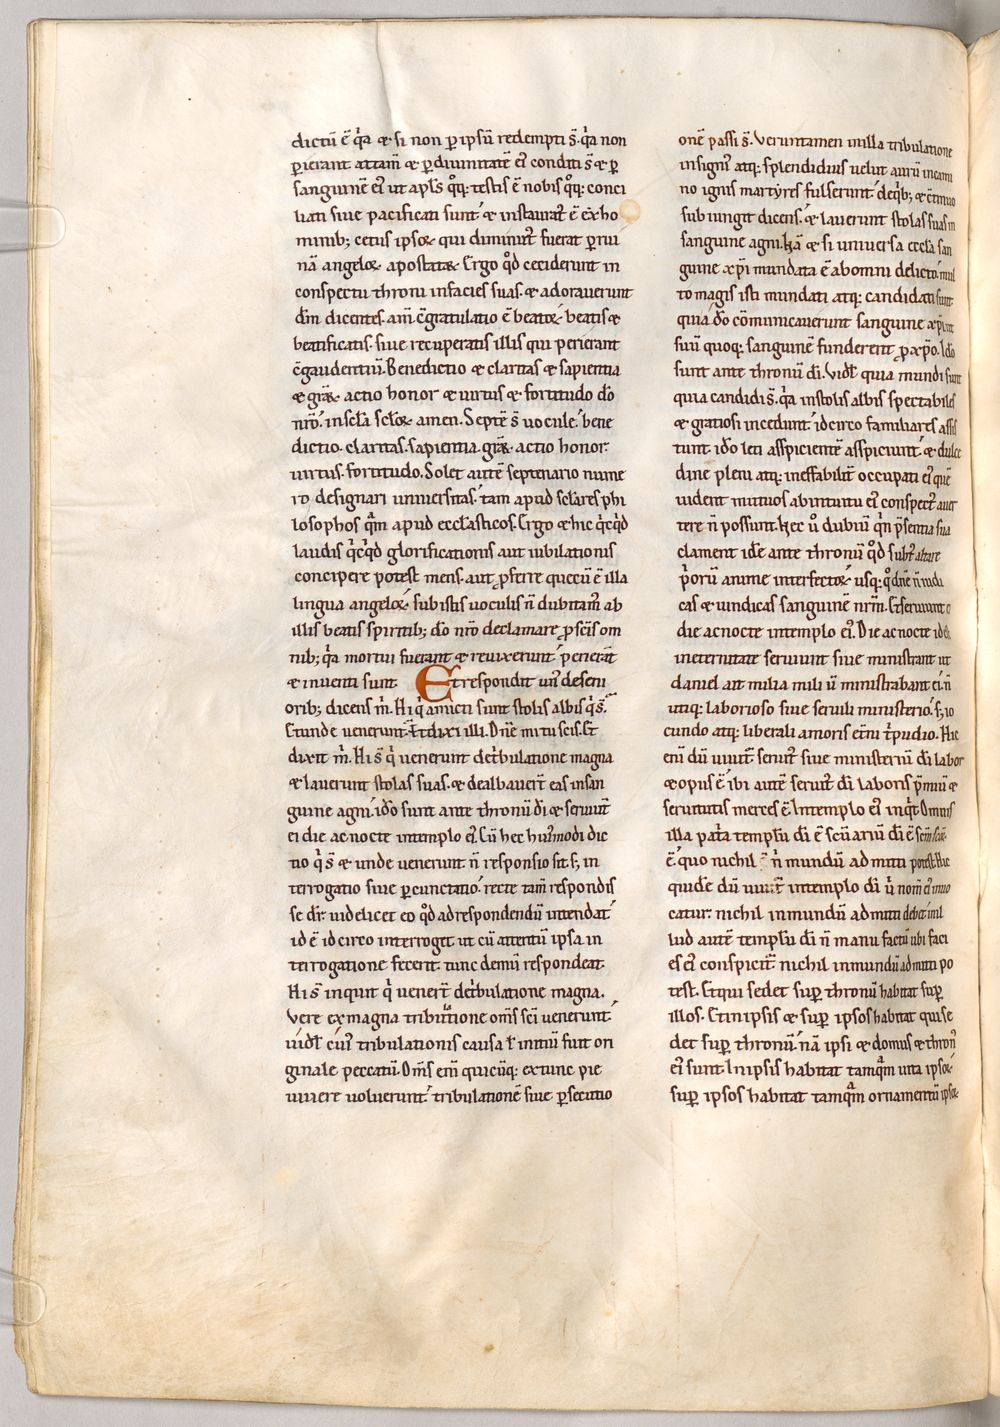 dictū ē q̇a & si non p̱ ipsū redempti s̄. q̇a non
p̱ierant attam̄ & p̱ diuinitatē ei᾽ conditi s̄ & p̱
sanguinē ei᾽ ut apl̄s qq; testis ē nobis qq; conci
liati siue pacificati sunt & instaurat᾽ ē ex ho
minib; cetus ipsoꝝ qui diminut᾽ fuerat p̱ rui
nā angeloꝝ apostataꝝ. Ergo qd̊ ceciderunt in
conspectu throni in facies suas. & adorauerunt
dm̄ dicentes. am̄. c̄gratulatio ē beatoꝝ. beatis &
beatificatis. siue recuperatis illis qui perierant
c̄gaudentiū. Benedictio & claritas & sapientia
& gr̄aꝝ actio honor & uirtus & fortitudo do̅
nr̄o. in scl̄a scl̄oꝝ amen. Septē s̄ uocule. bene
dictio. claritas. sapientia. gr̄aꝝ actio honor.
uirtus. fortitudo. Solet autē septenario nume
ro designari uniuersitas. tam apud sc̄lares phi
losophos q̄m apud eccl̄asticos. Ergo & hic q̇cqd
laudis q̇cqd glorificationis aut iubilationis
concipere potest mens. aut p̱ferre quecū ē illa
lingua angeloꝝ. sub istis uoculis n̄ dubitam᾽ ab
illis beatis spiritib; do̅ nr̄o declamare p̱ sc̄is om
nib; q̇a mortui fuerant & reuixerunt. perierāt
& inuenti sunt. Et respondit un᾽ de seni
orib; dicens m̄. Hi q̇ amicti sunt stolis albis q̇ s̄.
Et unde uenerunt. Et dixi illi. Dn̄e mi tu scis. Et
dixit m̄. Hi s̄ q̇ uenerunt de tͥbulatione magna
& lauerunt stolas suas. & dealbauer̄t eas in san
guine agni. ido̅ sunt ante thronū dī & seruiūt
ei die ac nocte in templo ei᾽. Cū hec hui᾽modi dic
tio q̇ s̄ & unde uenerunt n̄ responsio sit. s; in
terrogatio siue p̱cunctatio. recte tam̄ respondis
se dr̄. uidelicet eo qd̊ ad respondendū intendat.
id ē idcirco interrogat ut cū attentū ipsa in
terrogatione fecerit. tunc demū respondeat.
Hi s̄ inquit q̇ uener̄t de tͥbulatione magna.
Vere ex magna tribulatione om̄s sc̄i uenerunt.
uidl̄ cui᾽ tribulationis causa ł initiū fuit ori
ginale peccatū. Om̄s eni̅ quicūq; ex tunc pie
uiuere uoluerunt. tribulationē siue p̱secutio
onē passi s̄. Veruntamen in illa tribulatione
insigni᾽ atq; splendidius uelut aurū in cami
no ignis martyres fulserunt. de qb; &
subiungit dicens. & lauerunt stolas suas in
sanguine agni. Nā & si uniuersa eccl̄a san
guine xp̄i mundata ē ab omni delicto. mul
to magis isti mundati atq; candidati sunt
quia do̅ cōmunicauerunt sanguine
suū quoq; sanguinē funderent p̱ xp̄o. Ido̅
sunt ante thronū dī. Vidl̄ quia mundi sunt
quia candidi s̄. q̇a in stolis albis spectabiles
& gratiosi incedunt. idcirco familiares assis
tunt. ido̅ leti asspicientē asspiciunt. & dulce
dine pleni atq; ineffabilit᾽ occupati ei᾽ quē
uident mutuos ab intuitu ei᾽ conspect᾽ auer
tere n̄ possunt. Hec u̅ dubiū q̇n p̄sentia sua
clament ide̅ ante thronū qd̊ subt᾽ altare
p̄orū anime interfectoꝝ. usq; q̊ dn̄e n̄ iudi
cas & uindicas sanguinē nr̄m. Et seruiunt ei
die ac nocte in templo ei᾽. Die ac nocte id ē
in eternitate seruiunt siue ministrant ut
daniel ait milia miliū ministrabant ei. n̄
utiq; laborioso siue seruili ministerio. s; io
cundo atq; liberali amoris et̄ni tͥpudio. Hic
eni̅ dū uiuit᾽ seruit᾽ siue ministeriū dī labor
& opus ē. ibi autē seruit᾽ dī laboris p̄miū &
seruitutis merces ē. In templo ei᾽ inq̇t. Omnis
illa patͥa templū dī ē sc̄uariū dī ē
ē. quo nichil n̄ mundū admitti potest. Hic
quide̅ dū uiuit᾽ in templo dī
catur. nichil inmundū admitti debet.
lud autē templū dī n̄ manu factū ubi faci
es ei᾽ conspicit᾽ nichil inmundū admitti po
test. Et qui sedet sup̱ thronū habitat sup̱
illos. Et in ipsis & sup̱ ipsos habitat qui se
det sup̱ thronū. nā ipsi & domus & thron᾽
ei᾽ sunt. In ipsis habitat tamq̄m uita ipsoꝝ.
sup̱ ipsos habitat tamq̄m ornamentū ipsoꝝ.